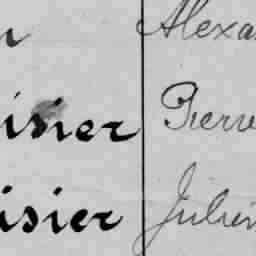 n Alexa
isier Pierre
isier Julien